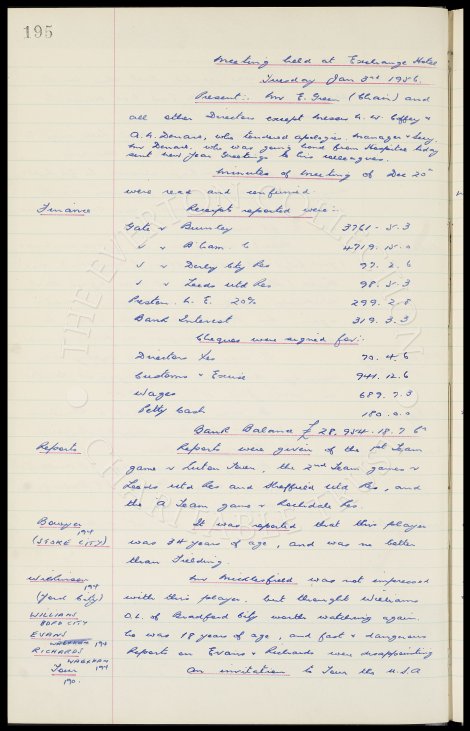 195
Meeting held at Exchange Hotel
Tuesday Jan 3rd 1956.
Present:- Mr E. Green (Chair) and
all other Directors except Messrs
A. H. Denaro, who tendered apologies. Manager & Secy.
Mr Denaro, who was going home from Hospital today
sent new year Greetings to his colleagues.
Minutes of Meeting of Dec 20th
were read and confirmed.
Finance
Receipts reported were:-
Gate v Burnley 3761-5.3
" v B'ham. C 4719.15.0
" v Derby Cty Res 97.2.6
" v Leeds Utd Res 98.5.3
Preston. N. E. 20% 299.2.8
Bank Interest 319.3.3
Cheques were signed for:-
Directors Exes 70.4.6
Customs & Excise 941.12.6
Wages 689.7.3
Petty Cash 180.0.0
Bank Balance £28,954.18.7
Reports
Reports were given of the 1st Team
game v Luton Town, the 2nd Team games v
Leeds Utd Res and Sheffield Utd Res, and
the A Team game v Rochdale Res.
Bowyer 194
(STOKE CITY)
It was reported that this player
was 34 years of age, and was no better
than Fielding.
Wilkinson 194
(York City)
Mr Micklesfield was not impressed
with this player, but thought Williams
WILLIAMS
BDFD CITY
O.L. of Bradford City worth watching again.
EVANS
WREXHAM 194
he was 18 years of age, and fast & dangerous
RICHARDS
WREXHAM 194
Reports on Evans & Richards were disappointing
Tour
190.
An invitation to Tour the U.S.A
THE EVERTON COLLECTION
CHARITABLE